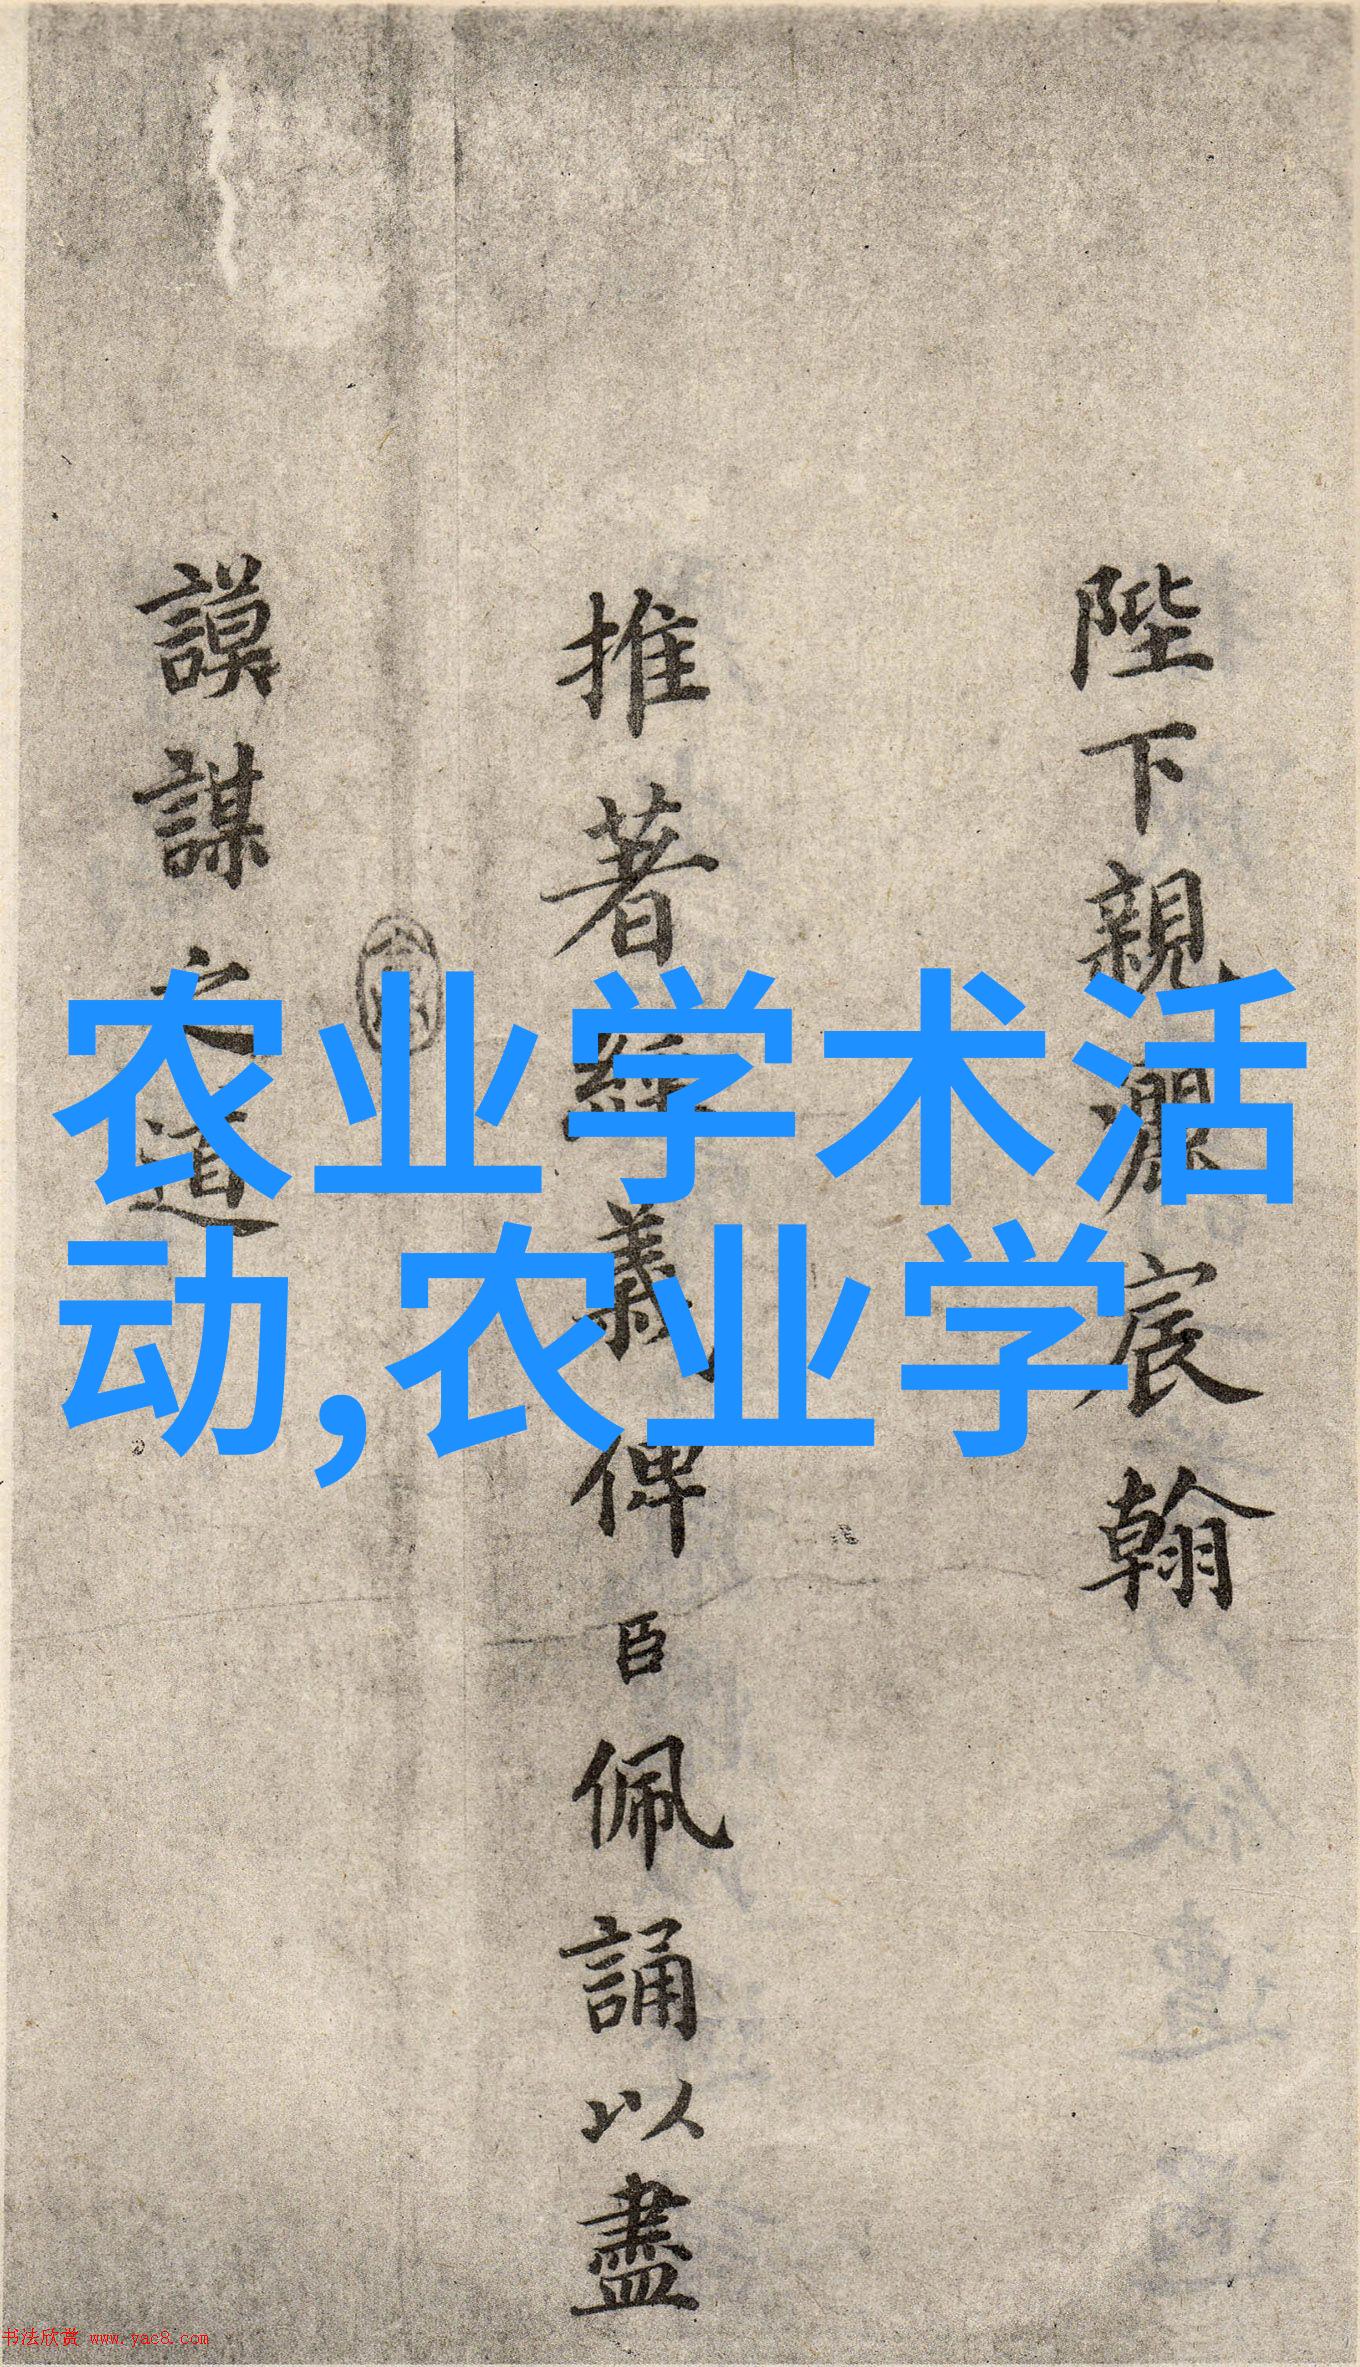 陛下親灑宸翰
推著經義俾臣佩誦以盡
謨謀之道
农业学术活
动,农业学
书法欣赏 www.yac8.com